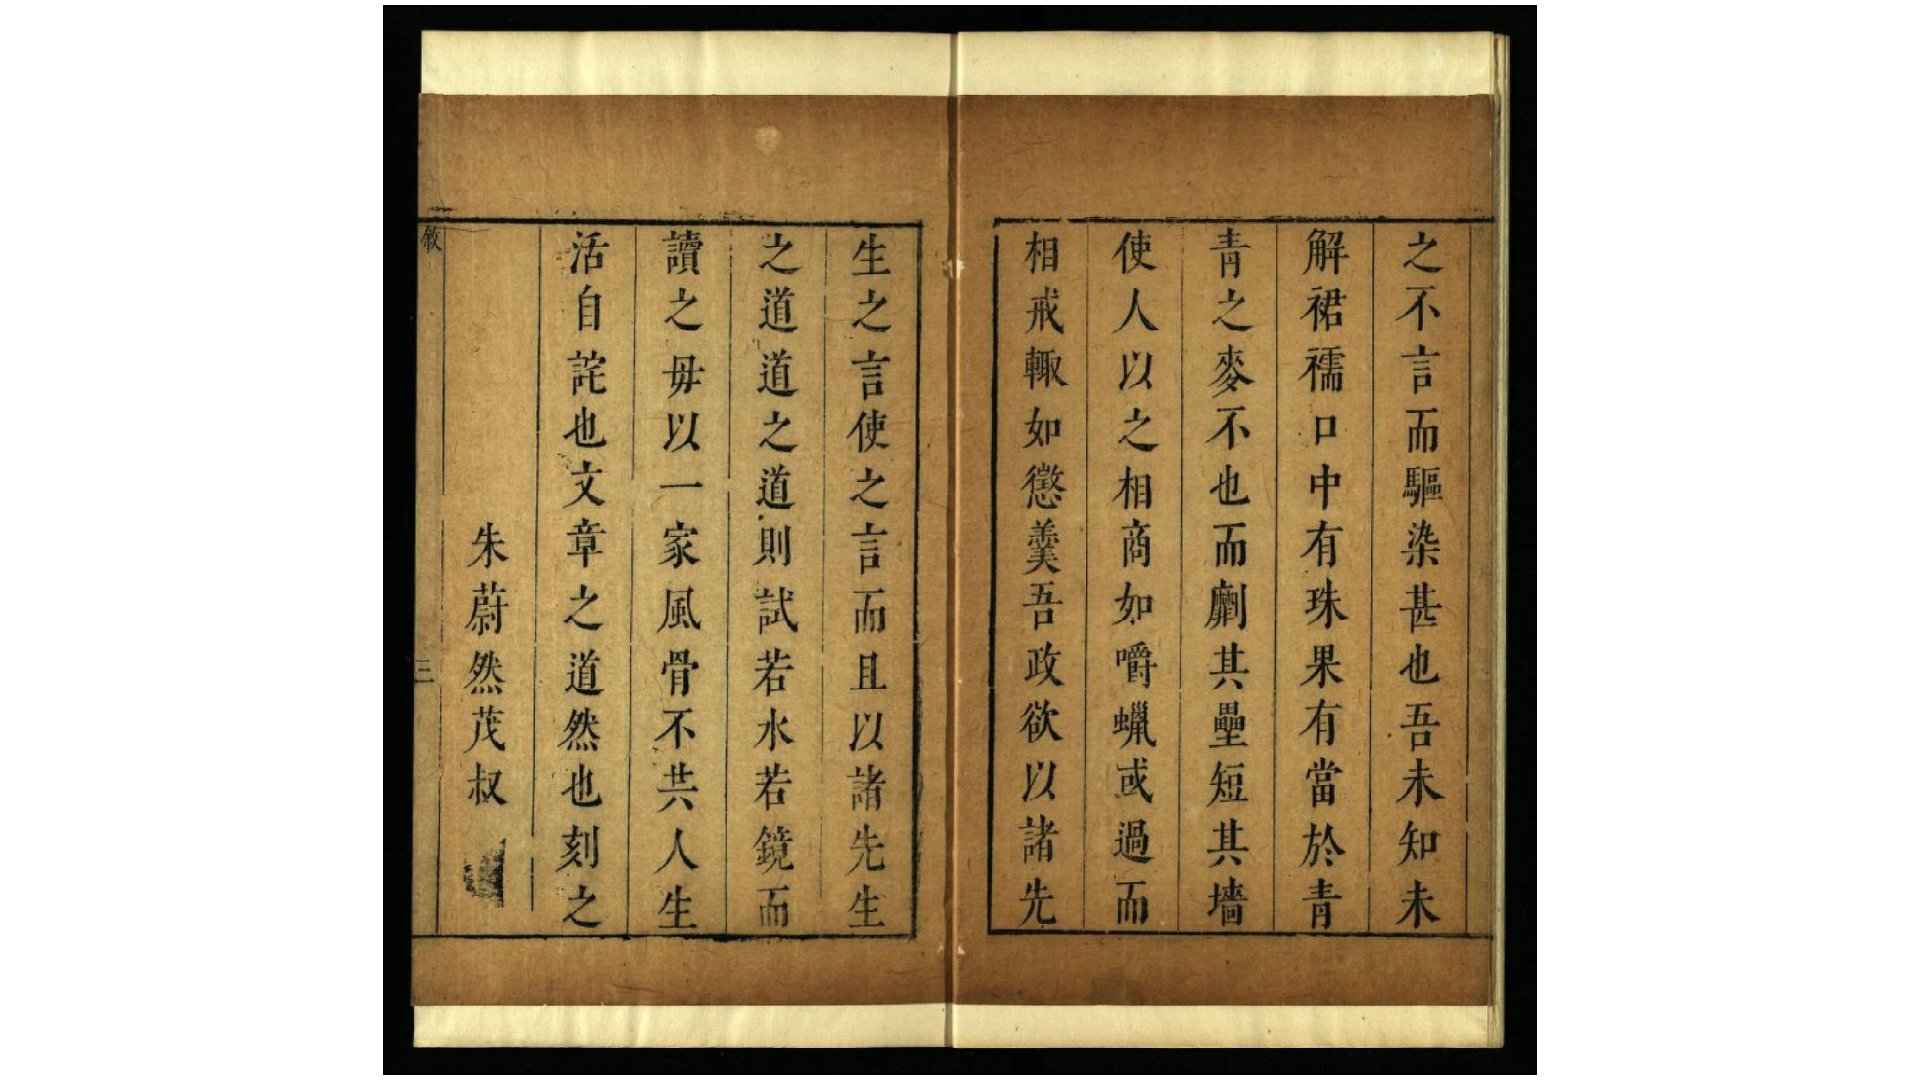 之不言而驅染甚也吾未知未
解裙襦口中有珠果有當於青
青之麥不也而劘其壘短其墻
使人以之相商如嚼蠟或過而
相戒輙如懲羹吾政欲以諸先
生之言使之言而且以諸先生
之道道之道則試若水若鏡而
讀之毋以一家風骨不共人生
活自詫也文章之道然也刻之
朱蔚然茂叔
敘
三